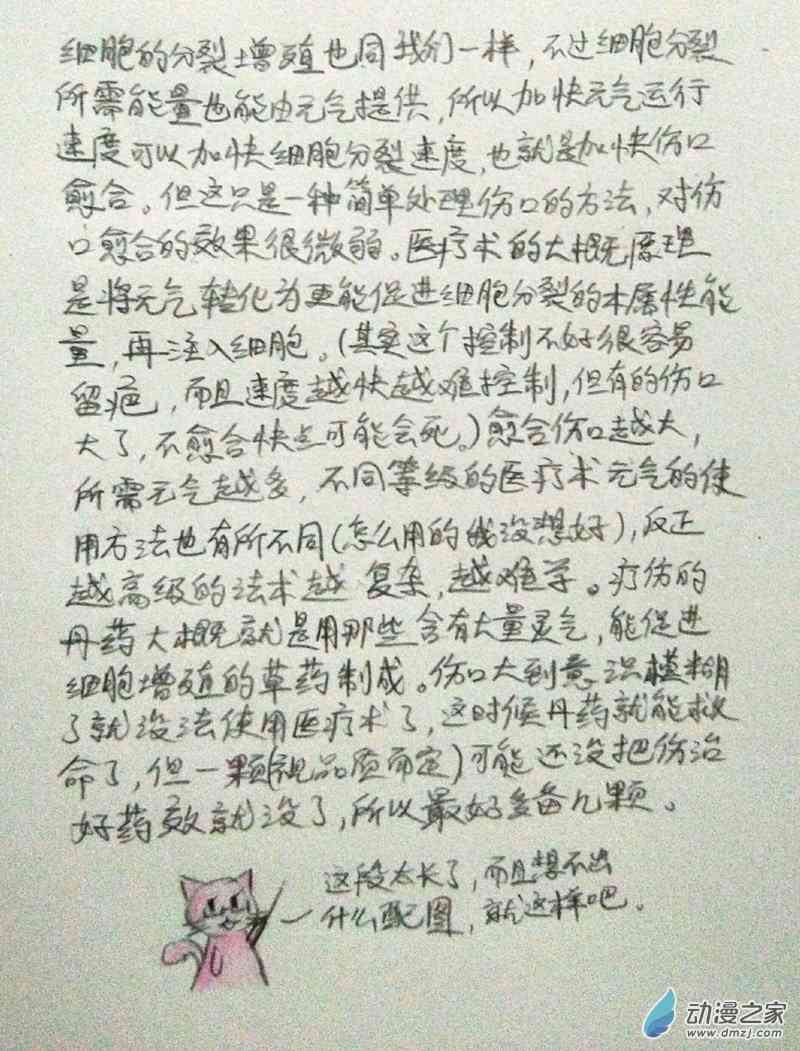 细胞的分裂增殖也同我们一样，不过细胞分裂
所需能量也能由元气提供，所以加快元气运行
速度可以加快细胞分裂速度，也就是加快伤口
愈合。但这只是一种简单处理伤口的方法，对伤
口愈合的效果很微弱。医疗术的大概原理
是将元气转化为更能促进细胞分裂的木属性能
量，再注入细胞。（其实这个控制不好很容易
留疤，而且速度越快越难控制，但有的伤口
大了，不愈合快点可能会死。）愈合伤口越大，
所需元气越多，不同等级的医疗术元气的使
用方法也有所不同（怎么用的我没想好），反正
越高级的法术越复杂，越难学。疗伤的
丹药大概就是用那些含有大量灵气，能促进
细胞增殖的草药制成。伤口大到意识模糊
了就没法使用医疗术了，这时候丹药就能救
命了，但一颗（视品质而定）可能还没把伤治
好药效就没了，所以最好多备几颗。
这段太长了，而且想不出
什么配图，就这样吧。
动漫之家
www.dmzj.com